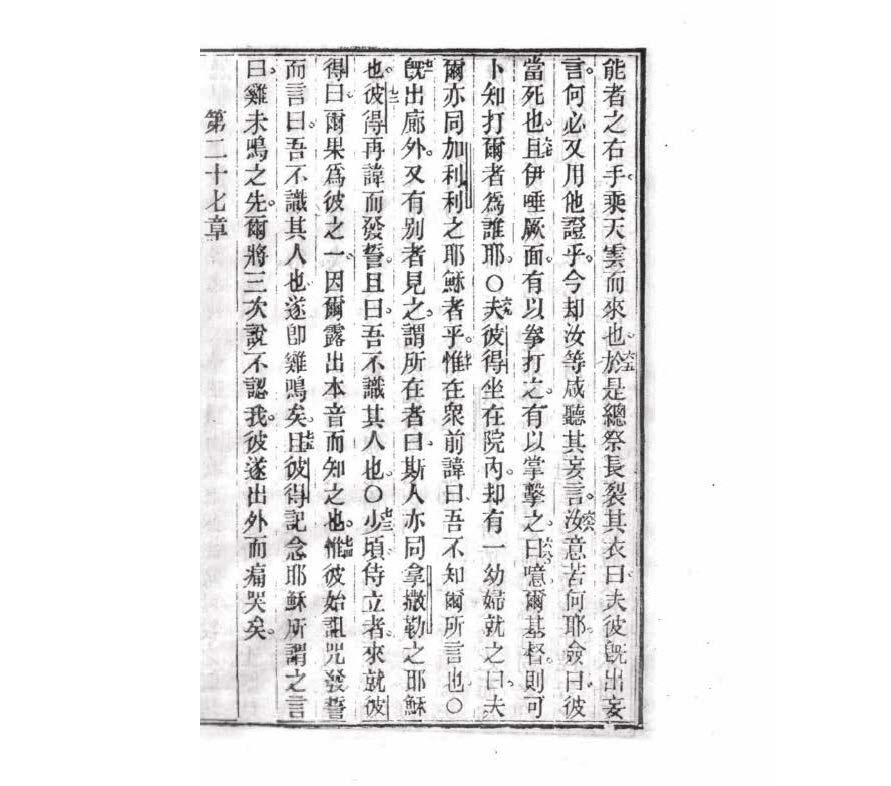 能者之右手乘天雲而來也。六五於是總祭長裂其衣曰。夫彼旣出妄
言。何必又用他證乎。今却汝等咸聽其妄言。六六汝意若何耶。僉曰。彼
當死也。六七且伊唾厥面。有以拳打之。有以掌擊之。六八曰。噫爾基督。則可
卜知打爾者爲誰耶。〇六九夫彼得坐在院內。却有一幼婦就之曰。夫
爾亦同加利利之耶穌者乎。七十惟在衆前諱曰。吾不知爾所言也。〇
七一旣出廊外。又有別者見之。謂所在者曰。斯人亦同拿撒勒之耶穌
也。七二彼得再諱而發誓。且曰。吾不識其人也。〇七三少頃侍立者。來就彼
得曰。爾果爲彼之一。因爾露出本音而知之也。七四惟彼始詛咒發誓
而言曰。吾不識其人也。遂卽雞鳴矣。七五且彼得記念耶穌所謂之言
曰。雞未鳴之先。爾將三次說不認我。彼遂出外而痛哭矣。
第二十七章